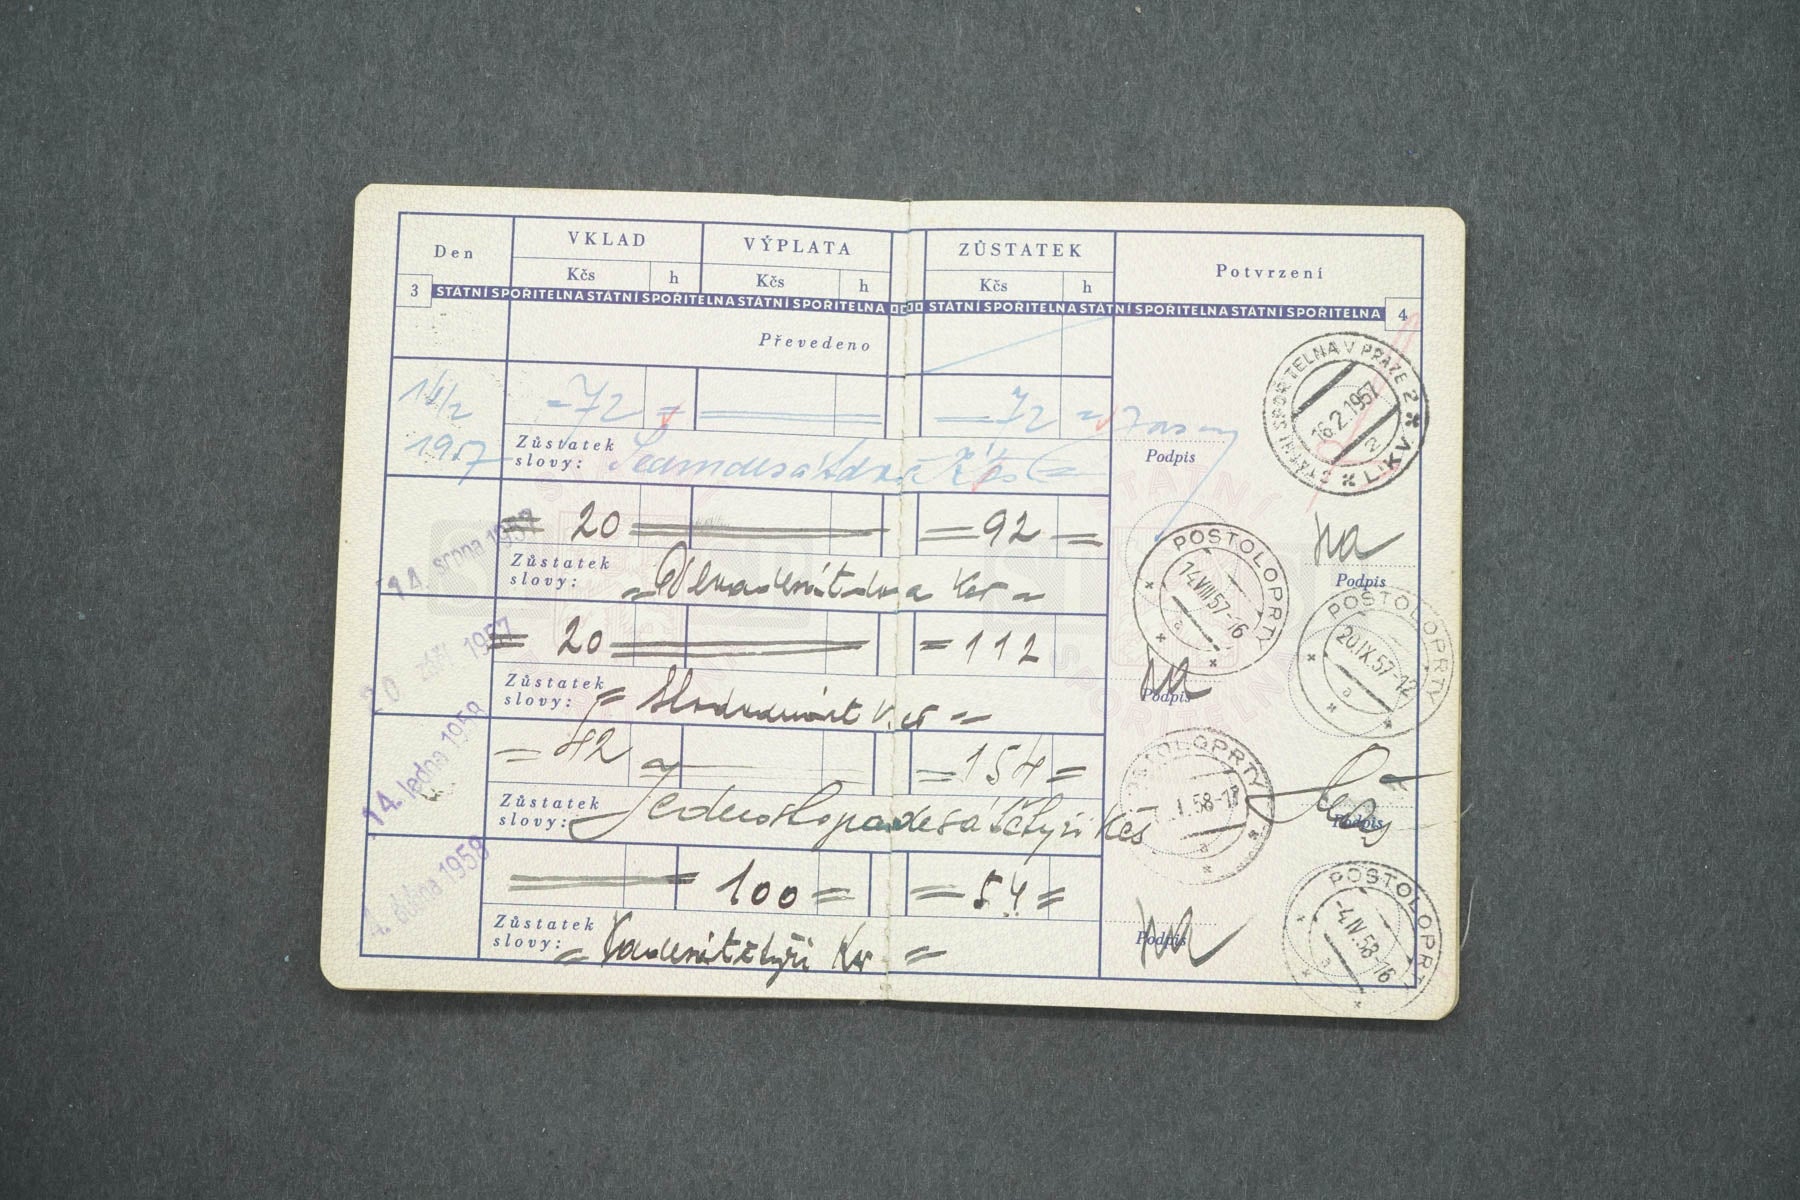 Den VKLAD VÝPLATA ZŮSTATEK Potvrzení
Kčs h Kčs h Kčs h
3 STÁTNÍ SPOŘITELNA STÁTNÍ SPOŘITELNA STÁTNÍ SPOŘITELNA STÁTNÍ SPOŘITELNA STÁTNÍ SPOŘITELNA STÁTNÍ SPOŘITELNA 4
Převedeno
STÁTNÍ SPOŘITELNA V PRAZE 2 LIKV.
16.2.1957
a
1957
=72= =72=
Zůstatek
slovy: Sedmdesátdva Kčs=
Podpis
14. srpna 1957
= 20 = =92=
Zůstatek
slovy: = Devadesátdva Kčs =
Podpis
POSTOLOPRTY
14.VIII.57-16
a
20. září 1957
= 20 = =112
Zůstatek
slovy: = Stodvanáct Kčs =
Podpis
POSTOLOPRTY
20.IX.57-12
a
14. ledna 1958
= 42 = =154=
Zůstatek
slovy: Jednostopadesátčtyři Kčs
Podpis
POSTOLOPRTY
a
4. dubna 1958
100 = =54=
Zůstatek
slovy: = Padesátčtyři Kčs =
Podpis
POSTOLOPRTY
-4.IV.58-16
a